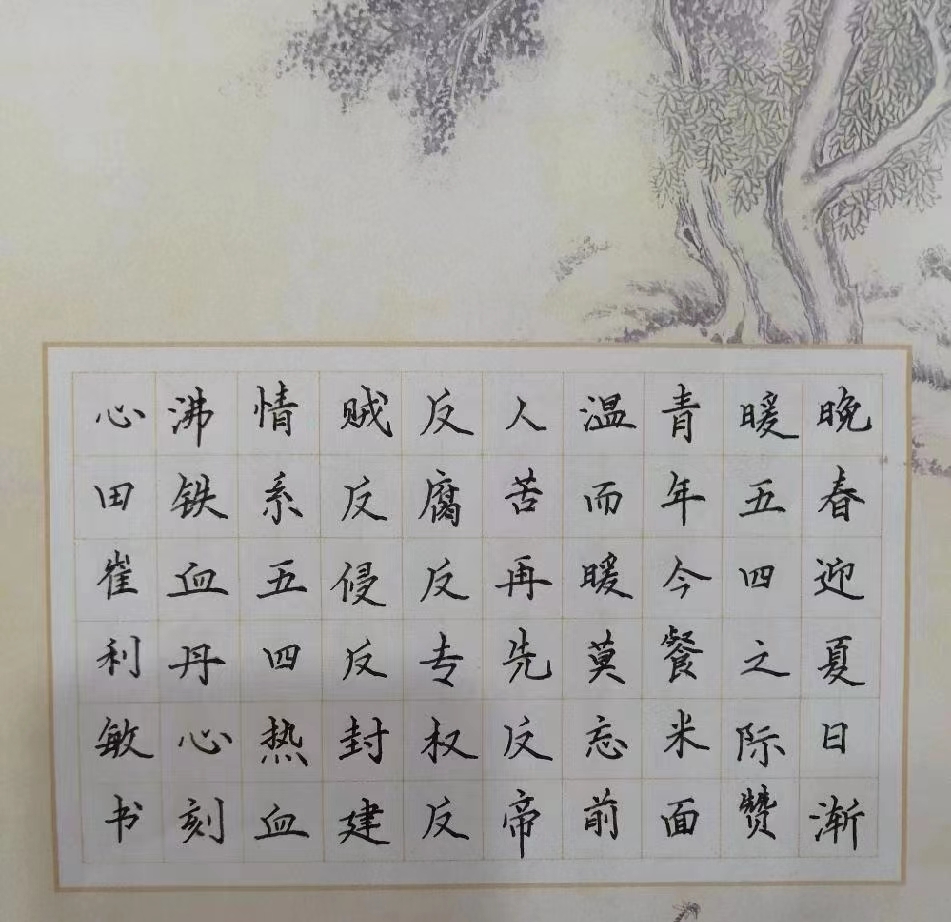 晚春迎夏日渐
暖五四之际赞
青年今餐米面
温而暖莫忘前
人苦再先反帝
反腐反专权反
贼反侵反封建
情系五四热血
沸铁血丹心刻
心田崔利敏书